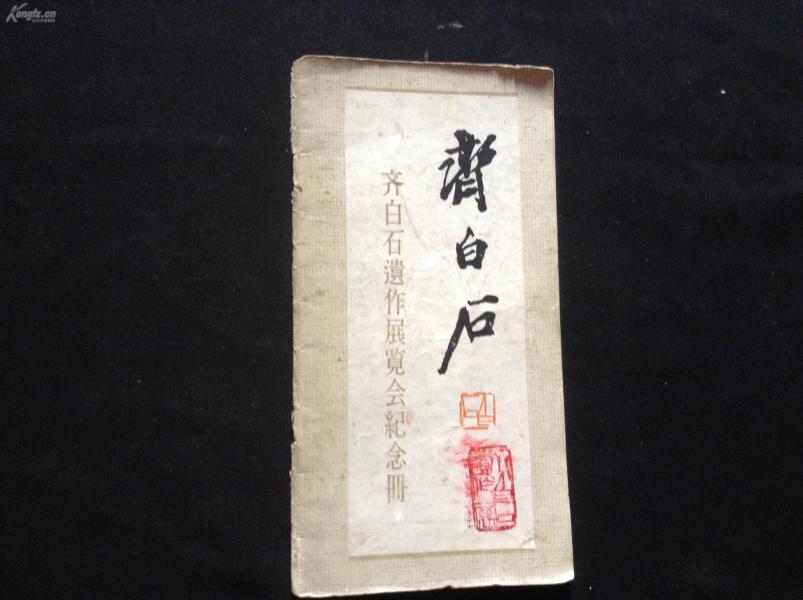 Kongfz.cn
齊白石
齐白石遺作展覧会紀念冊